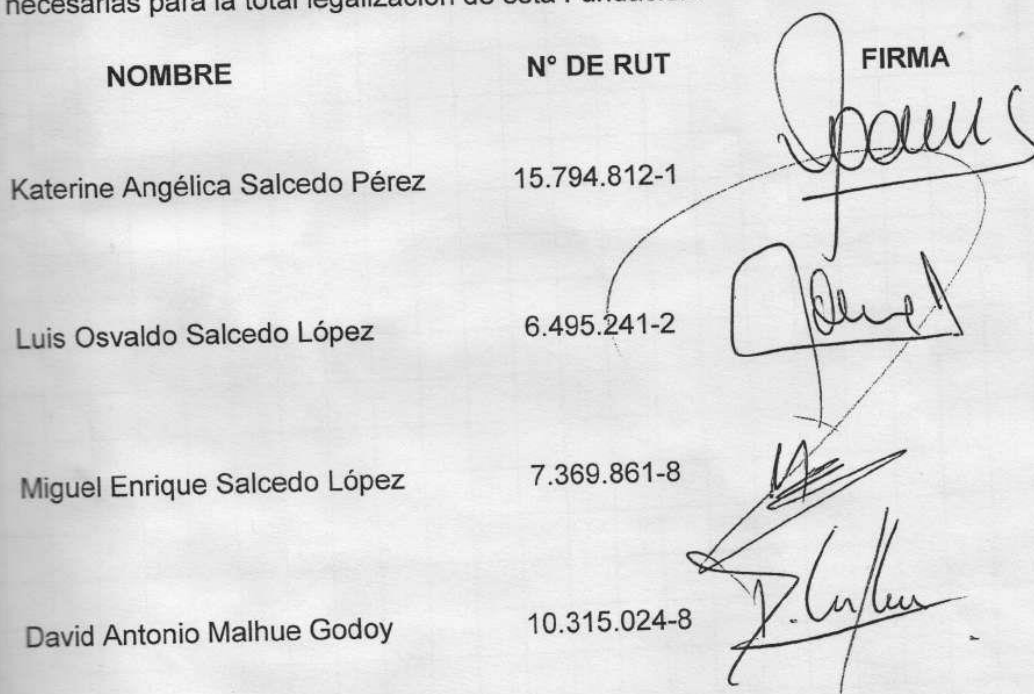 necesarias para la total legalización de esta Fundación.
NOMBRE N° DE RUT FIRMA
Katerine Angélica Salcedo Pérez 15.794.812-1
Luis Osvaldo Salcedo López 6.495.241-2
Miguel Enrique Salcedo López 7.369.861-8
David Antonio Malhue Godoy 10.315.024-8